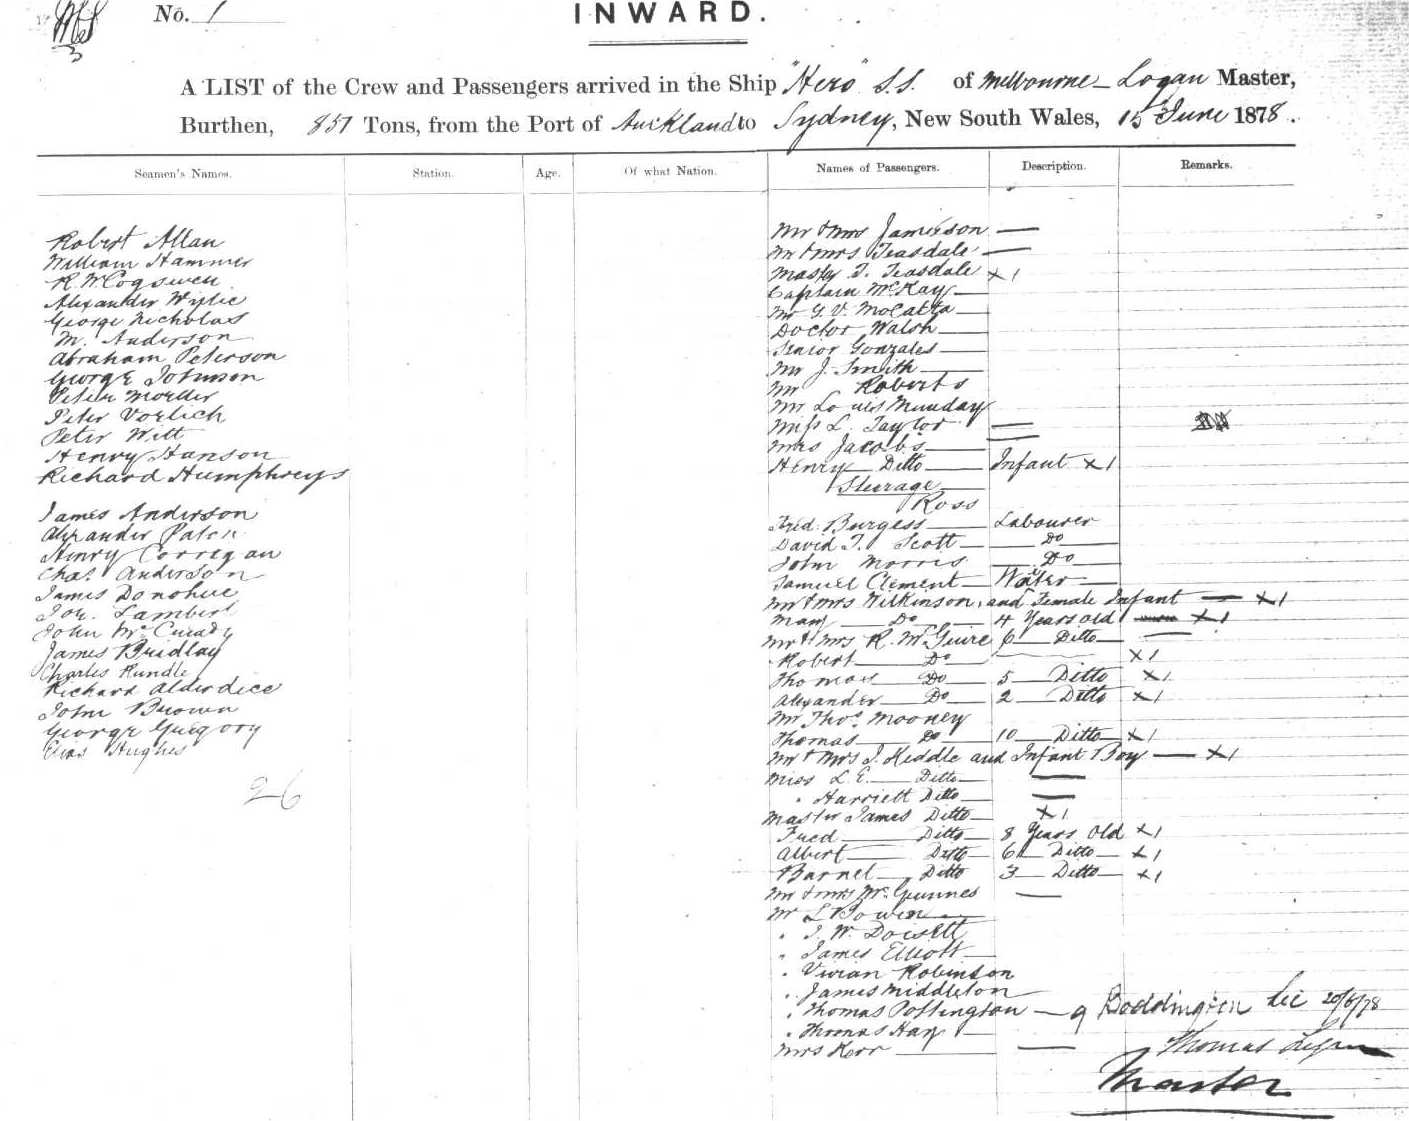 No. 1
INWARD.
A LIST of the Crew and Passengers arrived in the Ship "Hero" S.S. of Melbourne - Logan Master,
Burthen, 851 Tons, from the Port of Auckland to Sydney, New South Wales, 15 June 1878.
Seamen's Names. Station. Age. Of what Nation. Names of Passengers. Description. Remarks.
Robert Allan
William Hammer
Alexander Wylie
George Nicholas
M. Anderson
Abraham Peterson
George Johnson
Peter
Peter Vorlich
Peter Witt
Henry Hanson
Richard Humphreys
James Anderson
Alexander
Henry Corrigan
Chas. Anderson
James Donohue
Lambert
John McCurdy
James Bridlay
Charles Rundle
Richard Alderdice
John Brown
George Gregory
Hughes
26
Mr & Mrs Jamieson —
Mr & Mrs Teasdale —
Master T. Teasdale x 1
Captain McKay
Mr G. V. Mocatta
Doctor Walsh
Senior Gonzales
Mr J. Smith
Mr Roberts
Mr Louis Munday
Miss L. Taylor —
Mrs Jacobs —
Henry Ditto Infant x 1
Sturage
Ross
Fred. Burgess Labourer
David T. Scott Do
John Morris Do
Samuel Clement Waiter
Mr & Mrs Wilkinson, and Female Infant — x 1
Mary Do 4 Years old x 1
Mr & Mrs R. McGuire 6 Ditto —
Robert Do x 1
Thomas Do 5 Ditto x 1
Alexander Do 2 Ditto x 1
Mr Thos. Mooney
Thomas Do 10 Ditto x 1
Mr & Mrs J. Kiddle and Infant Boy — x 1
Miss L. E. Ditto —
" Harriett Ditto —
Master James Ditto x 1
Fred Ditto 8 Years Old x 1
Albert Ditto 6 Ditto x 1
Barnel Ditto 3 Ditto x 1
Mr & Mrs McGunnes —
Mr L Bowen
" J. W. Doisett
" James Elliott
" Vivian Robinson
" James Middleton
" Thomas Pottington
" Thomas Hay
Mrs Kerr —
Boddington 20/6/78
Thomas Logan
Master